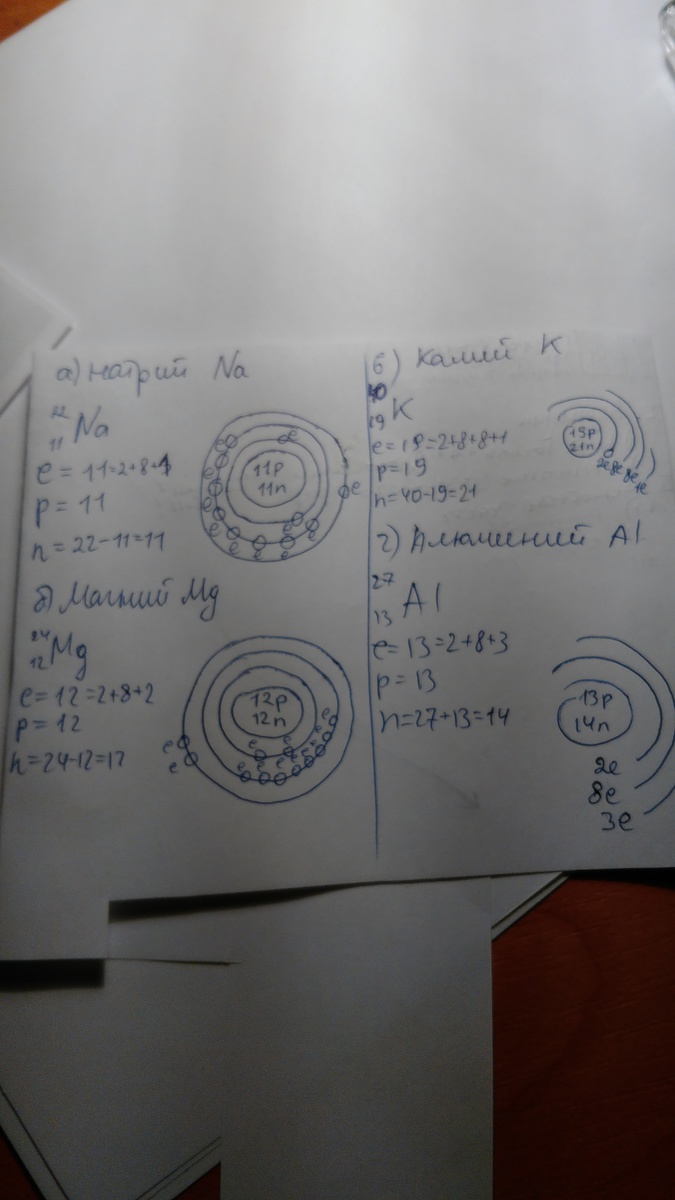 а) натрий Na
22
11 Na
e = 11=2+8+1
p = 11
n = 22-11=11
11p
11n
e
e
e
e
e
e
e
e
e
e
e
б) Магний Mg
24
12 Mg
e = 12=2+8+2
p = 12
n=24-12=12
12p
12n
e
e
e
e
e
e
e
e
e
e
e
e
в) Калий K
40
19 K
e = 19=2+8+8+1
p=19
n=40-19=21
19p
21n
2e 8e 8e 1e
г) Алюминий Al
27
13 Al
e = 13=2+8+3
p = 13
n=27+13=14
13p
14n
2e
8e
3e